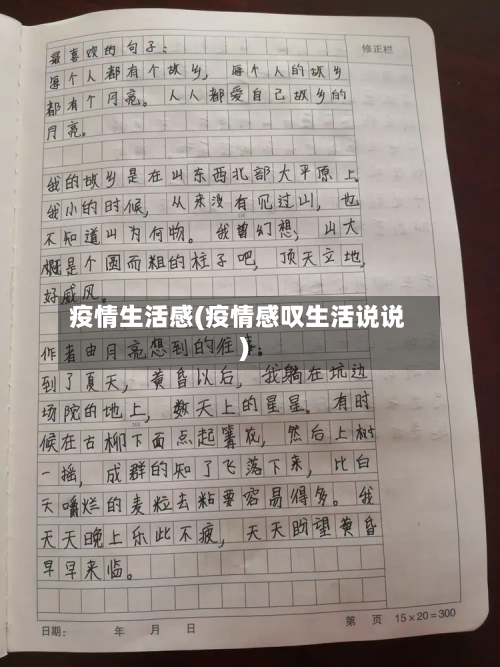 最喜欢的句子:
修正栏
每个人都有个故乡, 每个人的故乡
都有个月亮。人人都爱自己故乡的
月亮。
我的故乡是在山东西北部大平原上。
我小的时候, 从来没有见过山, 也
不知道山为何物。我曾幻想, 山大
概是个圆而粗的柱子吧, 顶天立地,
好威风。
疫情生活感(疫情感叹生活说说
)
作者由月亮想到的往事:
到了夏天, 黄昏以后, 我躺在坑边
场院的地上, 数天上的星星。有时
候在古柳下面点起篝火, 然后上树
一摇, 成群的知了飞落下来, 比白
天嚼烂的麦粒去粘要容易得多。我
天天晚上乐此不疲, 天天盼望黄昏
早早来临。
日期: 年 月 日
第 页 15×20=300